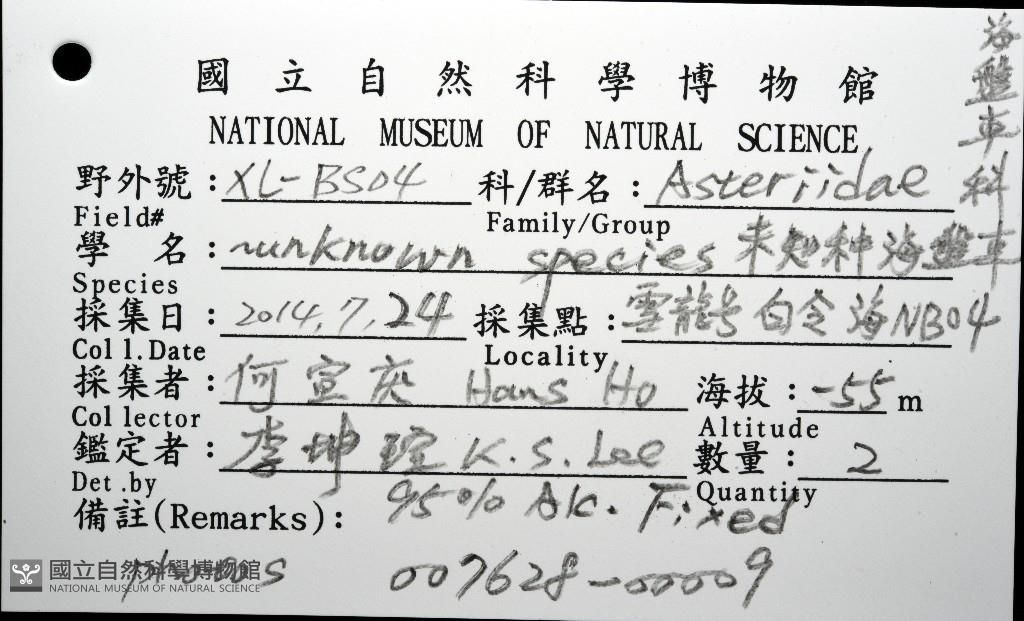 國立自然科學博物館
NATIONAL MUSEUM OF NATURAL SCIENCE
海盤車科
野外號：XL-BS04 科/群名：Asteriidae
Field# Family/Group
學名：~unknown species 未知种海盤車
Species
採集日：2014.7.24 採集點：雪龍号白令海NB04
Coll.Date Locality
採集者：何宣庆 Hans Ho 海拔：-55 m
Collector Altitude
鑑定者：李坤瑄 K.S. Lee 數量：2
Det.by Quantity
備註(Remarks)：95% Alc. Fixed
007628-00009
國立自然科學博物館
NATIONAL MUSEUM OF NATURAL SCIENCE